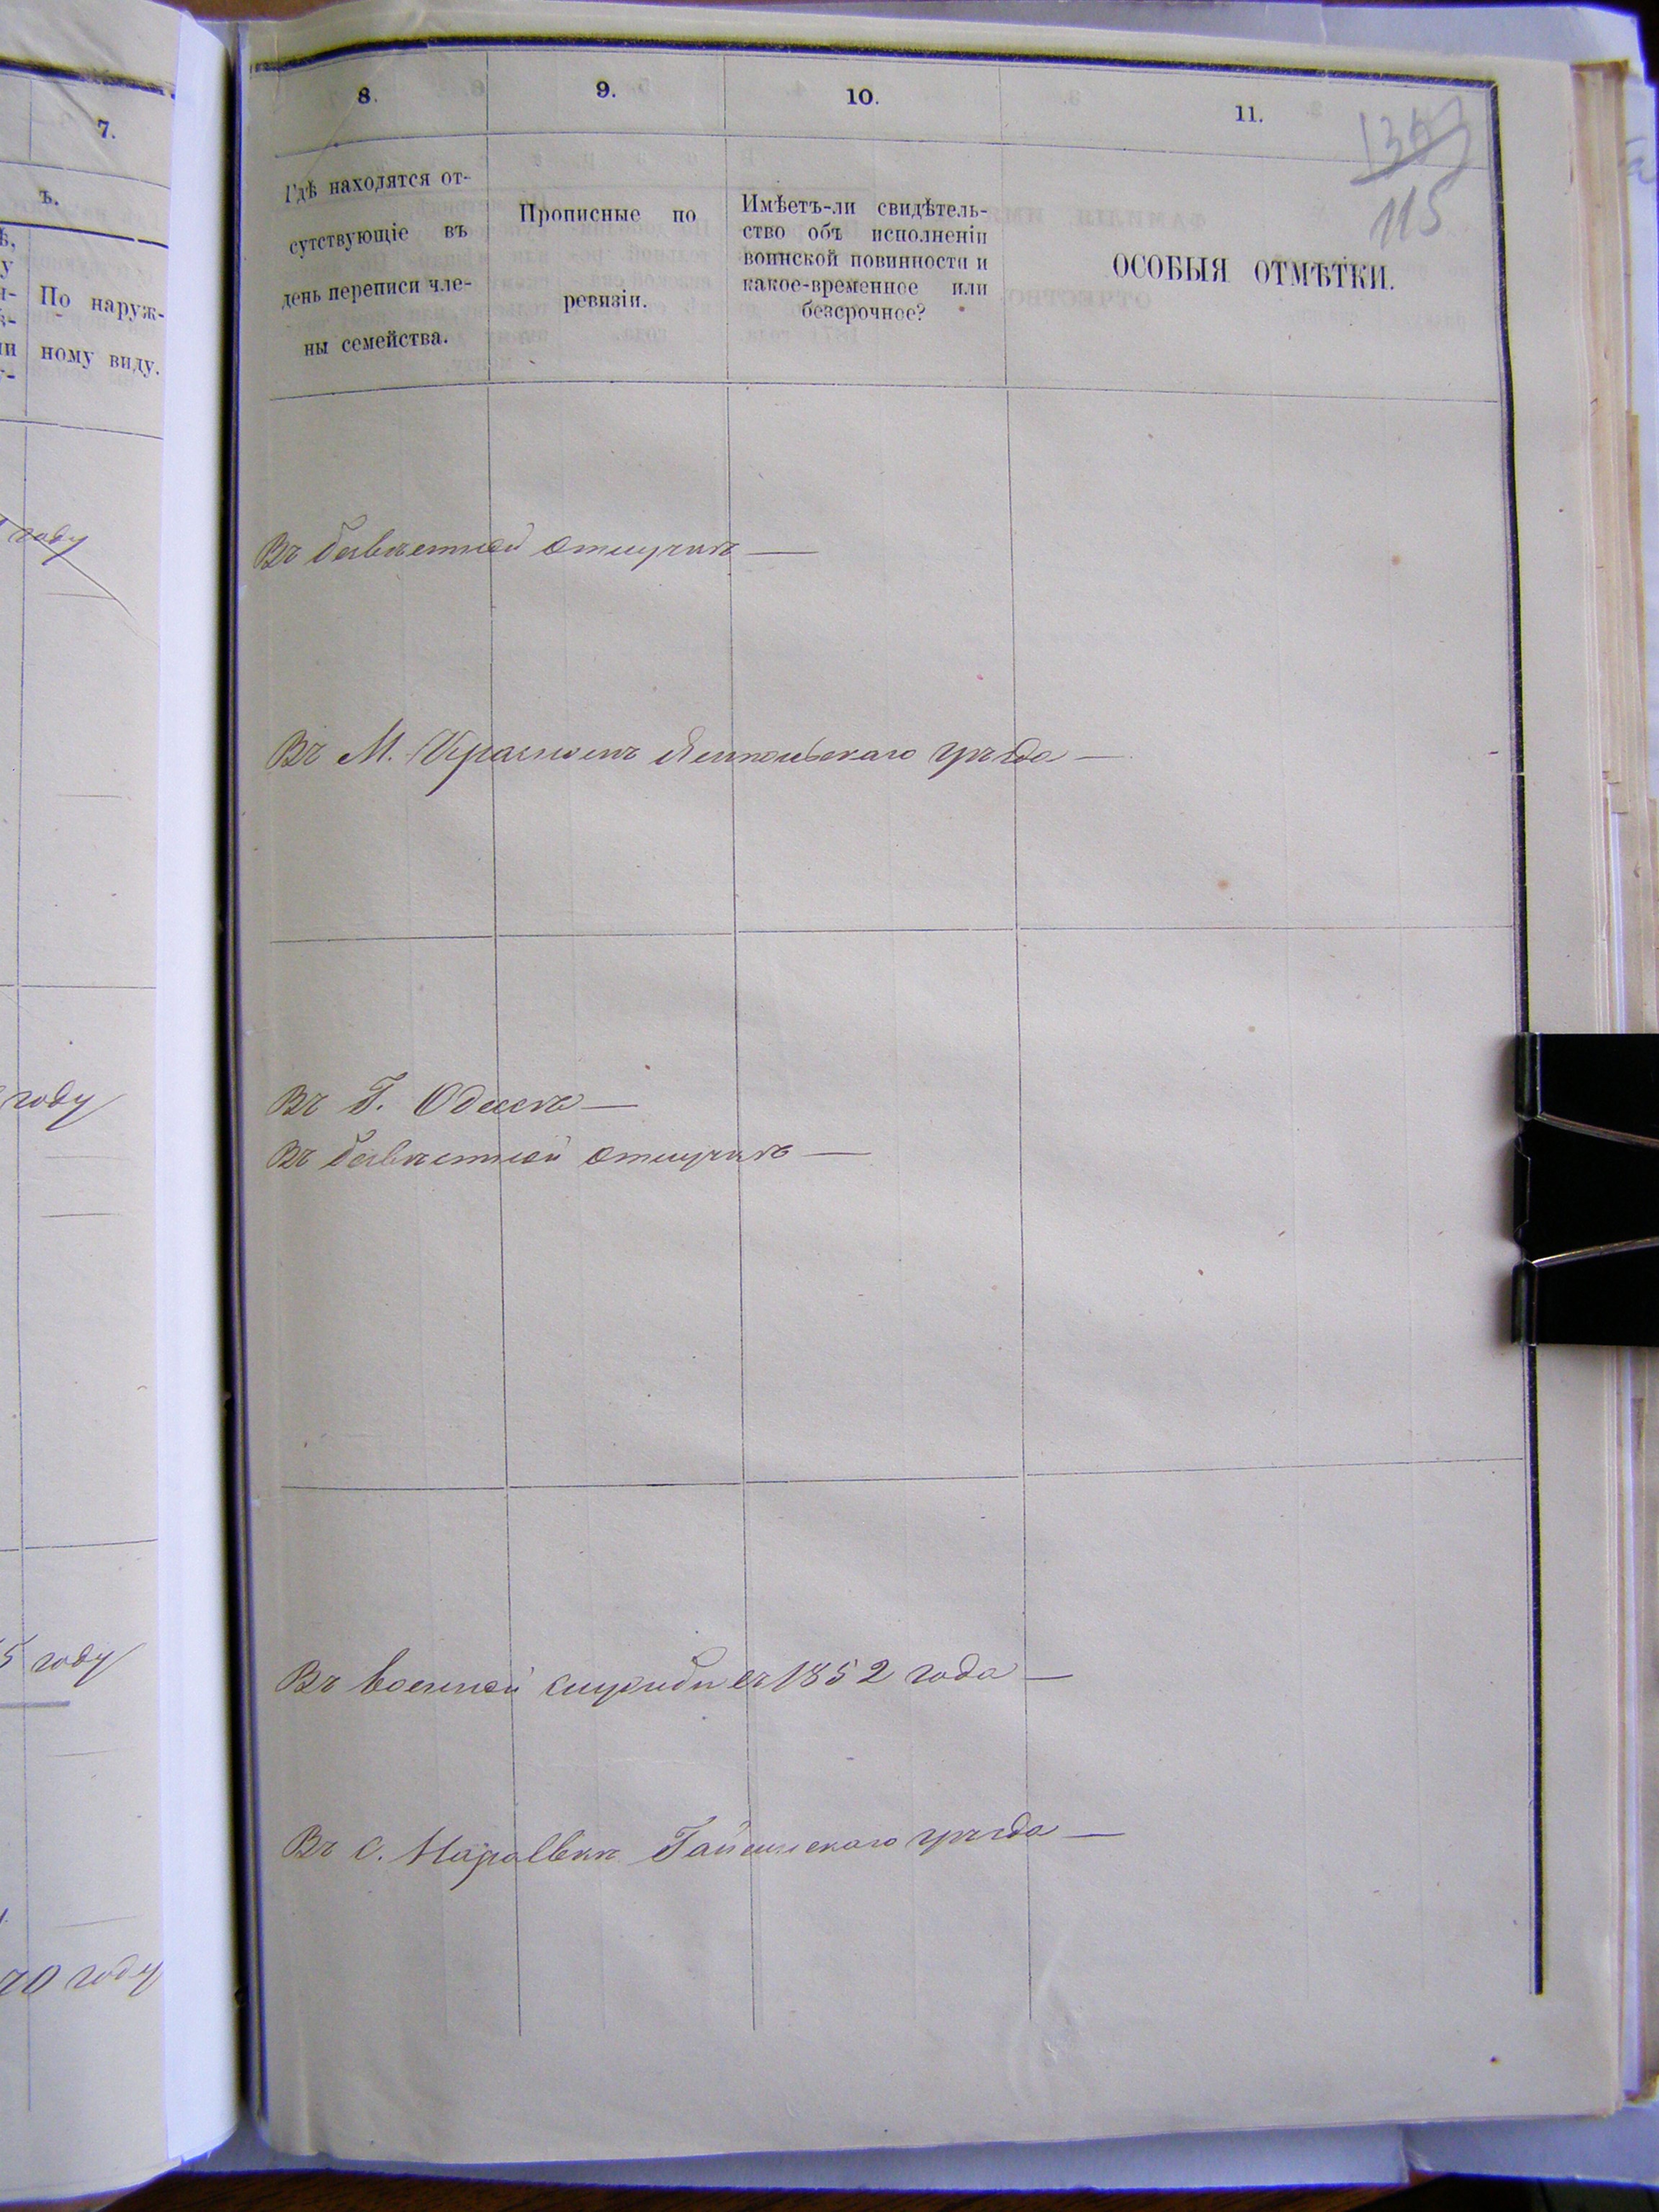 7.
ъ.
По наруж-
ному виду.
году
году
5 году
70 году
8.
9.
10.
11.
115
Гдѣ находятся от-
сутствующіе въ
день переписи чле-
ны семейства.
Прописные по
ревизіи.
Имѣетъ-ли свидѣтель-
ство объ исполненіи
воинской повинности и
какое-временное или
безсрочное?
ОСОБЫЯ ОТМѢТКИ.
Въ безвѣстной отлучкѣ —
Въ М. Красномъ Ямпольскаго уѣзда —
Въ Г. Одессѣ —
Въ безвѣстной отлучкѣ —
Въ военной службѣ съ 1852 года —
Въ С. Гайсинскаго уѣзда —